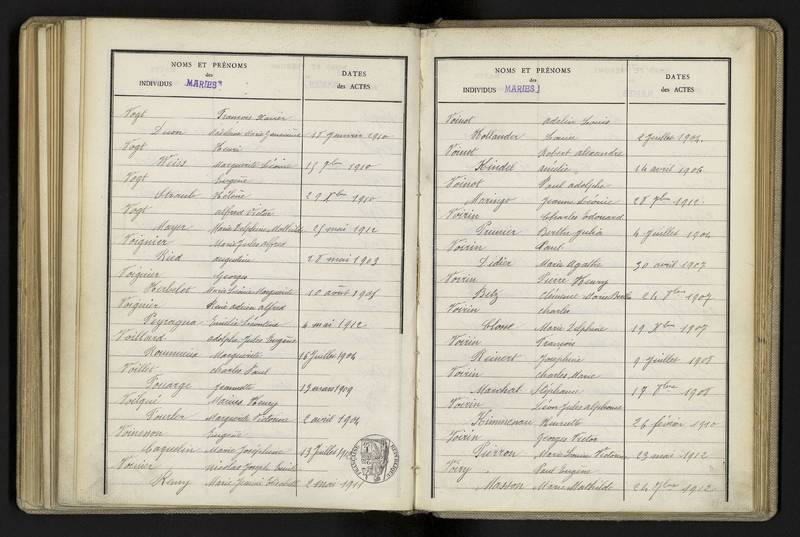 NOMS ET PRÉNOMS
des
INDIVIDUS MARIES
DATES
des ACTES
Vogt François Xavier
Vogt Henri
Weiss Marguerite 1910
Vogt Eugène
Straub Hélène 29 Xbre 1910
Vogt alfred Victor
Mayer Marie Delphine Mathilde 25 mai 1912
Voignier Marie Jules Alfred
Ried augustine 28 mai 1903
Voignier Georges
Herbelot Marie Marguerite 10 août
Voignier René adrien alfred
Peyragua Emilie Léontine 4 mai 1912
Voillard adolphe Jules Eugène
Marguerite 16 Juillet 1904
Voillet charles Paul
Fouarge Jeannette 13 mars 1909
Voilqué Henry
Fourler Marguerite Victorine 2 avril 1904
Voinenon Eugène
Marie Joséphine 13 Juillet
Voinier Nicolas Joseph Emile
Remy Marie Jeanne Elisabeth 2 mai 1911
NOMS ET PRÉNOMS
des
INDIVIDUS MARIES
DATES
des ACTES
Voinot adelin Louis
Hollander Louise 2 Juillet 1904
Voinot Robert alexandre
Kindel amélie 14 avril 1906
Voinot Paul adolphe
Maringo Jeanne Léonie 28 1912
Voirin Charles Edouard
Prunier Berthe Julia 4 Juillet 1904
Voirin Paul
Didier Marie Agathe 30 avril 1907
Voirin Pierre Henry
Betz Clémence Marie Berthe 24 1907
Voirin charles
Marie Delphine 19 Xbre 1907
Voirin François
Reinert Joséphine 9 Juillet 1908
Voirin charles Marie
Marchal Stéphanie 17 1908
Voirin Léon Jules alphonse
Henriette 26 février 1910
Voirin Georges Victor
Pierron Marie Louise Victorine 23 mai 1912
Voiry Paul Eugène
Masson Marie Mathilde 24 7bre 1912